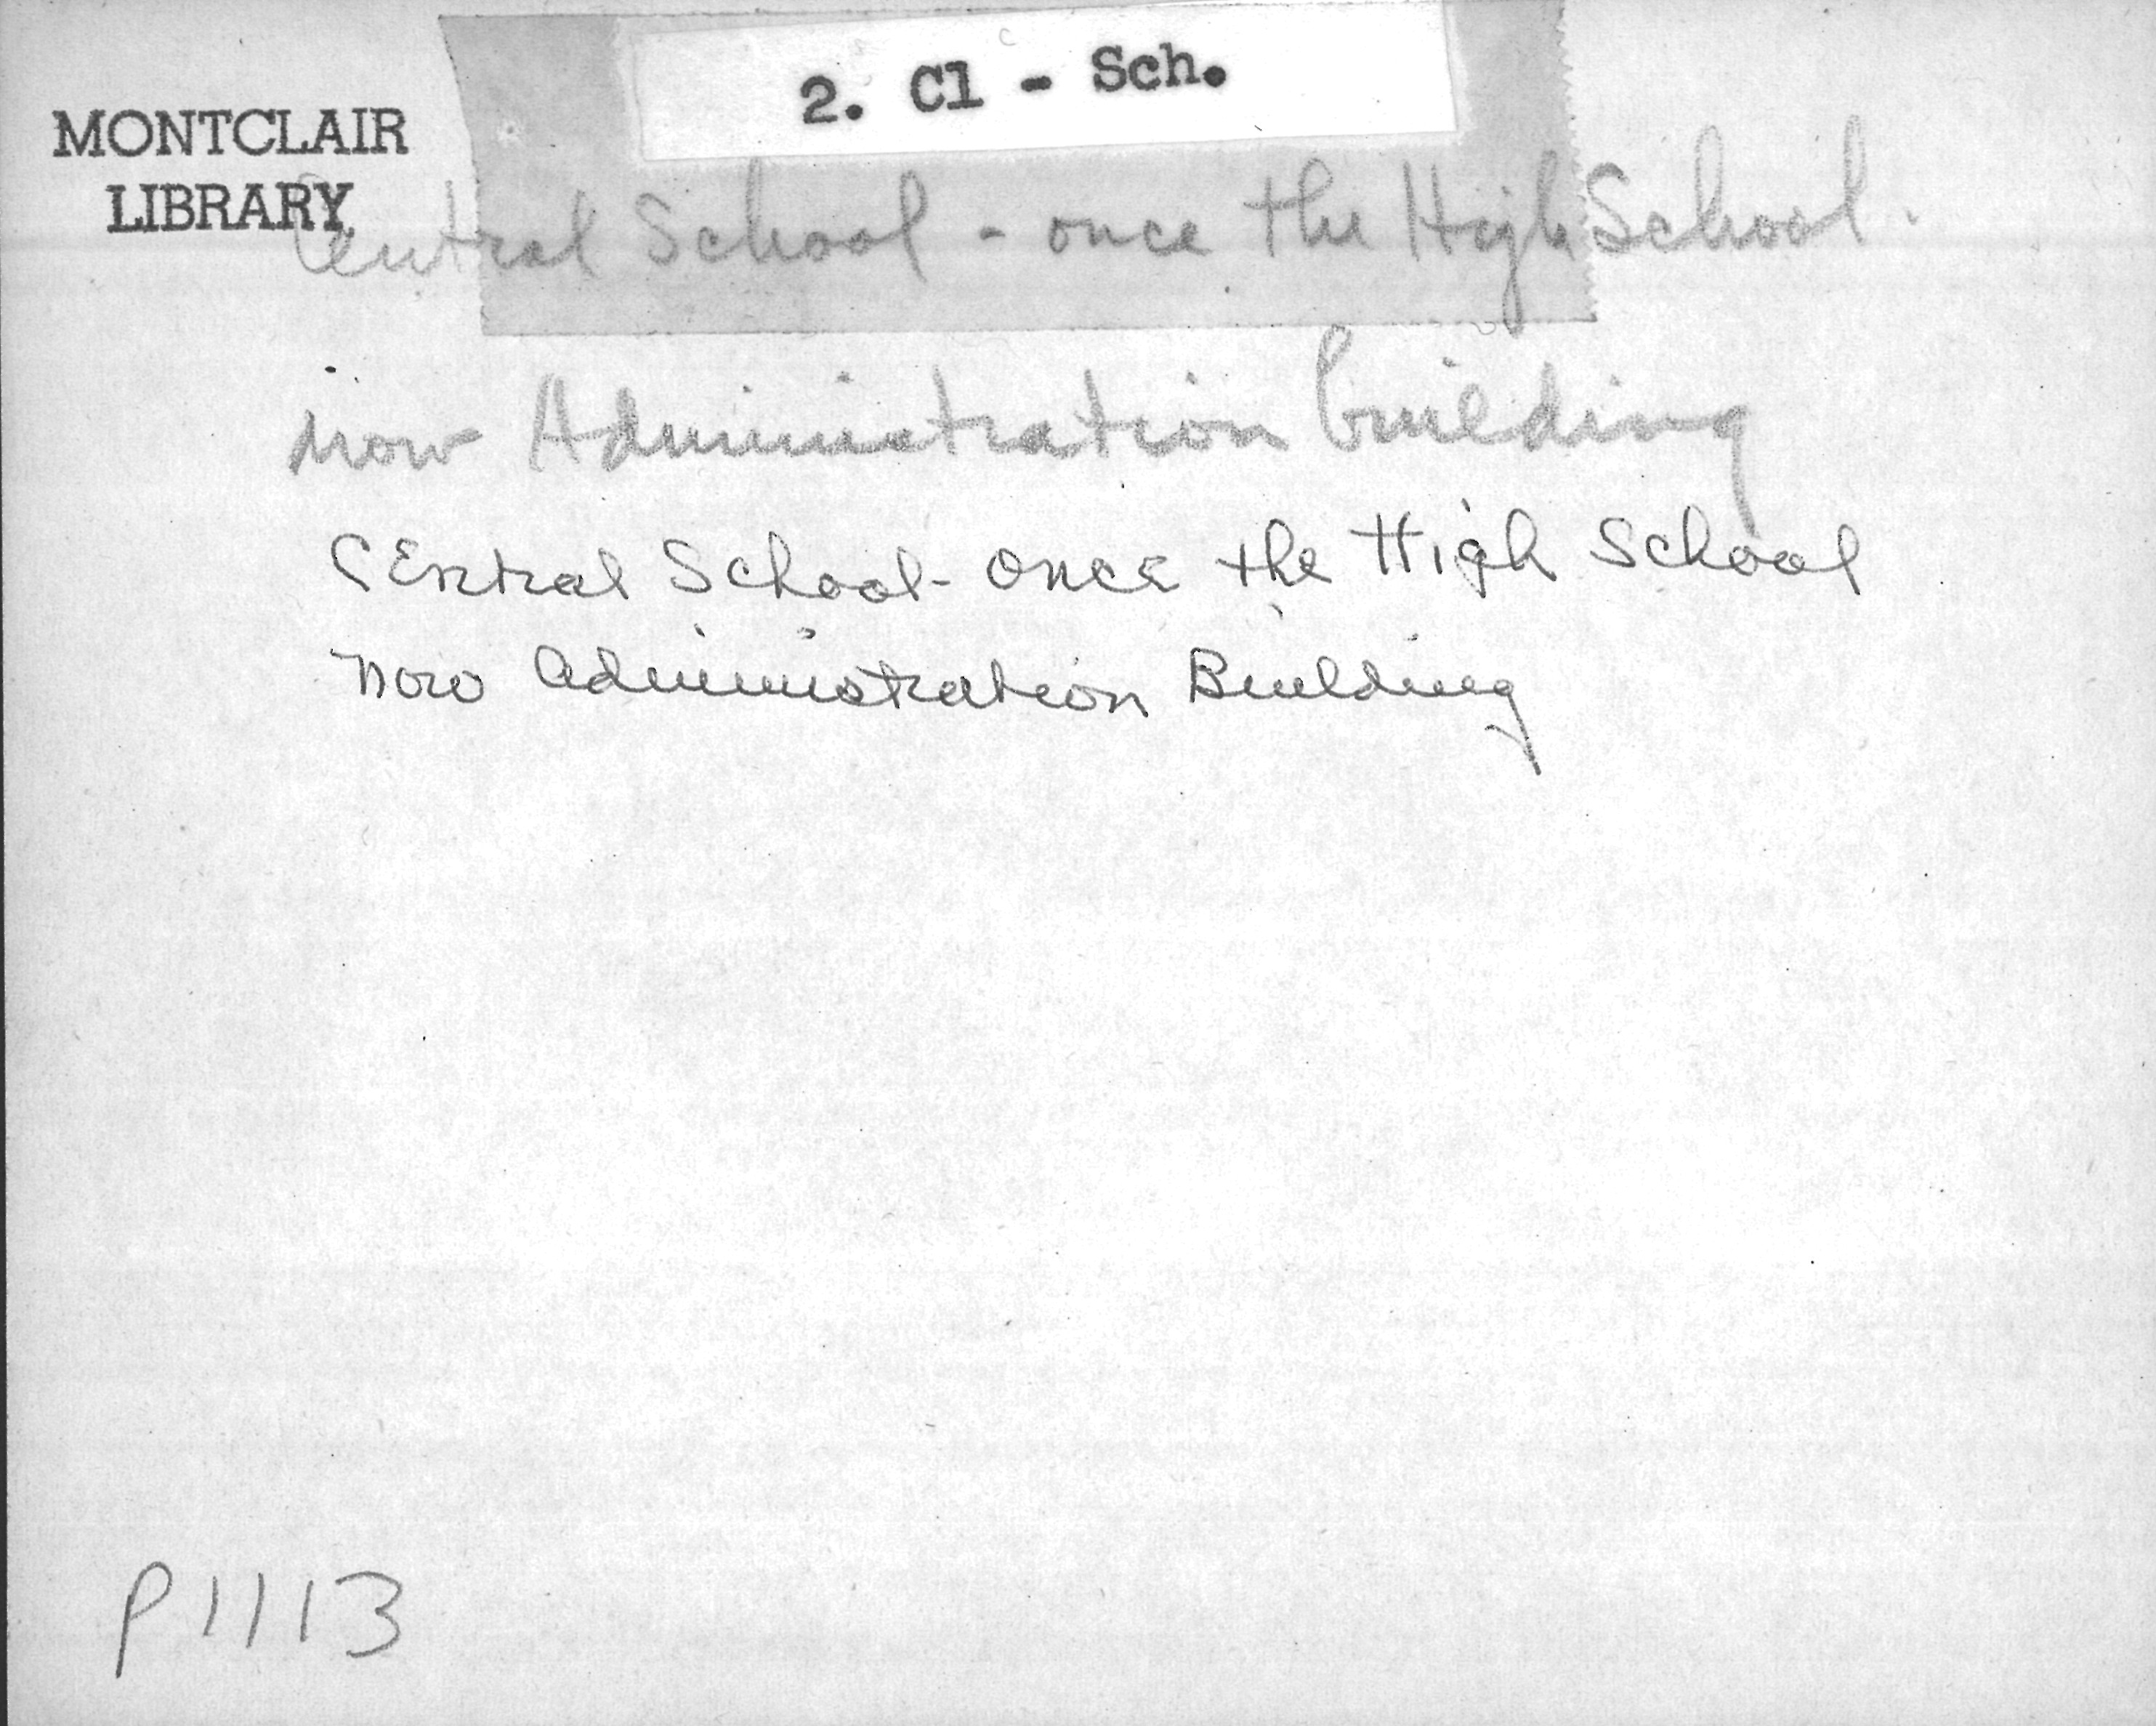 2. Cl - Sch.
MONTCLAIR
LIBRARY
Central School - once the High School.
now Administration building
Central School - once the High School
now Administration Building
P1113